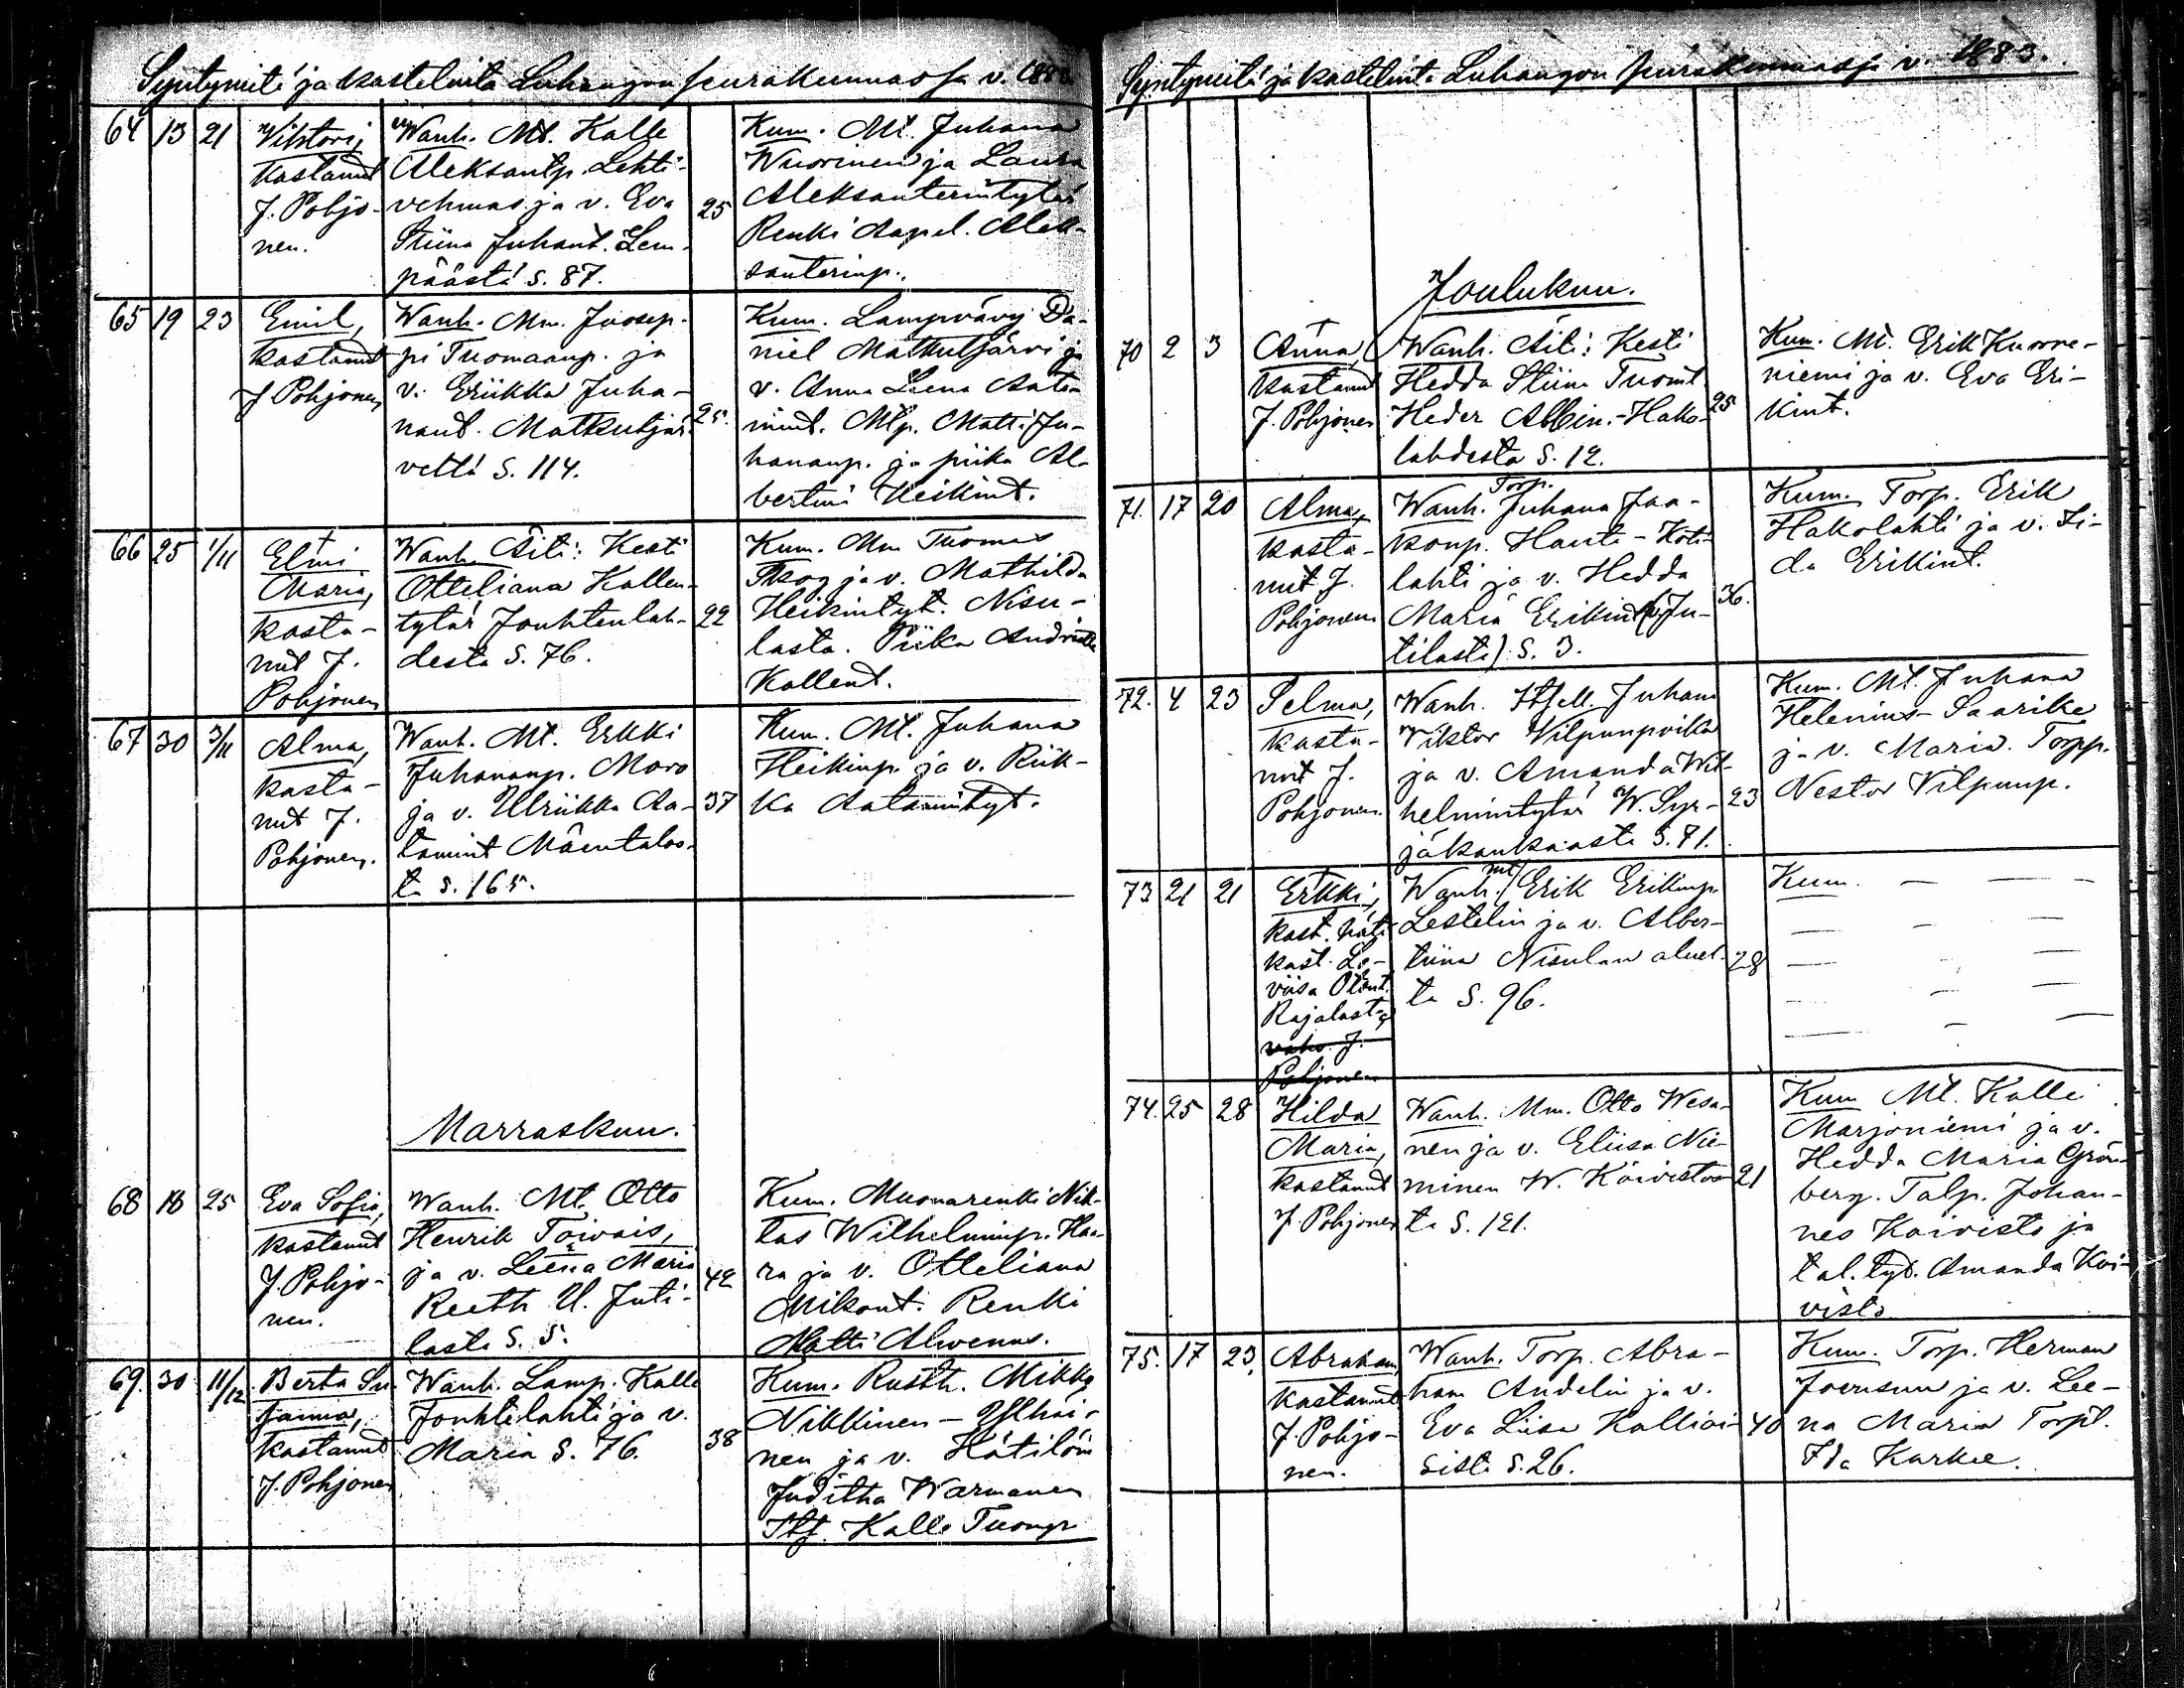 Syntyneitä ja kastetuita Luhangon seurakunnassa v. 1883
64 13 21
Vihtori,
kastanut
J. Pohjo-
nen.
Wanh. Mt. Kalle
Aleksantp. Lehti-
vehmas ja v. Eva
Stiina Juhant. Lem-
päästä s. 87.
25
Kum. Mt. Juhana
Wuorinen ja Laura
Aleksanterintytär
Renki Aapel. Alek-
santerinp.
65 19 23
Emil,
kastanut
J Pohjonen
Wanh. Mm. Joosep-
pi Tuomaanp. ja
v. Eriikka Juha-
nant. Matkutjär-
veltä s. 114.
25.
Kum. Lampvävy Da-
niel Matkutjärvi ja
v. Anna Leena Aata-
mint. Mlp. Matti Ju-
hananp. ja piika Al-
bertiini Heikint.
66 25 1/11
Elmi
Maria,
kasta-
nut J.
Pohjonen
Wanh. Äiti: Kesti
Otteliana Kallen-
tytär Jouhtenlah-
desta s. 76.
22
Kum. Mm Tuomas
Skog ja v. Mathilda
Heikintyt. Nisu-
lasta. Piika
Kallent.
67 30 3/11
Alma,
kasta-
nut J.
Pohjonen.
Wanh. Mt. Erkki
Juhananp. Moro
ja v. Ulriikka Aa-
tamint Mäentalos-
ta s. 165.
37
Kum. Mt. Juhana
Heikinp. ja v. Riik-
ka Aatamintyt.
Marraskuu.
68 18 25
Eva Sofia,
kastanut
J. Pohjo-
nen.
Wanh. Mt. Otto
Henrik Toivois,
ja v. Leena Maria
Reeth U. Juti-
lasta s. 5.
42
Kum. Muonarenki Nik-
las Wilhelminp. Haa-
ra ja v. Otteliana
Mikont. Renki
Matti Ahvenus.
69. 30 11/12
Berta Su-
sanna,
kastanut
J. Pohjonen
Wanh. Lamp. Kalle
Jouhtilahti ja v.
Maria s. 76.
38
Kum. Rusth. Mikko
Nikkinen – Ylhäi-
nen ja v. Hätilön
Juditha Warmanen
Itf. Kalle Tuomp
Syntyneitä ja kastetuita Luhangon seurakunnassa v. 1883.
Joulukuu.
70 2 3
Anna,
kastanut
J. Pohjonen
Wanh. Äiti: Kesti
Hedda Stiina Tuomt
Heder Albin.-Hako-
lahdesta s. 12.
25
Kum. Mt. Erik Kuorne-
niemi ja v. Eva Eri-
kint.
71. 17 20
Alma,
kasta-
nut J.
Pohjonen
Torp.
Wanh. Juhana Jaa-
konp. Hauta-Koti-
lahti ja v. Hedda
Maria Erikint (Ju-
tilasta) s. 3.
36.
Kum. Torp. Erik
Hakolahti ja v. Ii-
da Erikint.
72. 4 23
Selma,
kasta-
nut J.
Pohjonen.
Wanh. Itsell. Juhana
Viktor Vilpunpoika
ja v. Amanda Wil-
helmintytär W. Syr-
jäkankaasta s. 71.
23
Kum. Mt. Juhana
Helenius-Saarike
ja v. Maria. Torpp.
Nestor Vilpunp.
73 21 21
Erkki,
kast. hätä-
kast. Lo-
viisa Ottont.
Rajalasta
vahv. J.
Pohjonen
mt
Wanh. Erik Erikinp.
Lestelin ja v. Alber-
tiina Nisulan aluel-
ta s. 96.
28
Kum. — — —
74. 25 28
Hilda
Maria,
kastanut
J. Pohjonen
Wanh. Mm. Otto Wesa-
nen ja v. Eliisa Nie-
minen W. Koivistos-
ta s. 121.
21
Kum Mt. Kalle
Marjoniemi ja v.
Hedda Maria Grön-
berg. Talp. Johan-
nes Koivisto ja
tal. tyt. Amanda Koi-
visto
75. 17 23.
Abraham,
kastanut
J. Pohjo-
nen.
Wanh. Torp. Abra-
ham Andelin ja v.
Eva Liisa Kalliai-
sista s. 26.
40
Kum. Torp. Herman
Joensuu ja v. Lee-
na Maria Torpt.
Ida Karkee.